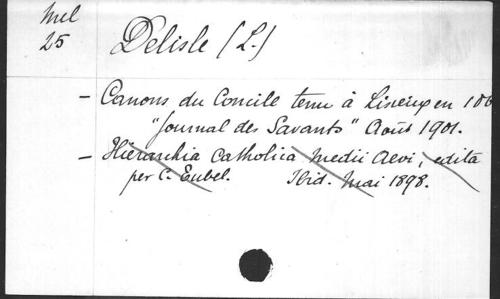 Mel
25
Delisle (L.)
- Canons du Concile tenu à Lisieux en 106
"Journal des Savants" Août 1901.
- Hiérarchia Catholica Medii Aevi, edita
per C. Eubel. Ibid. Mai 1898.